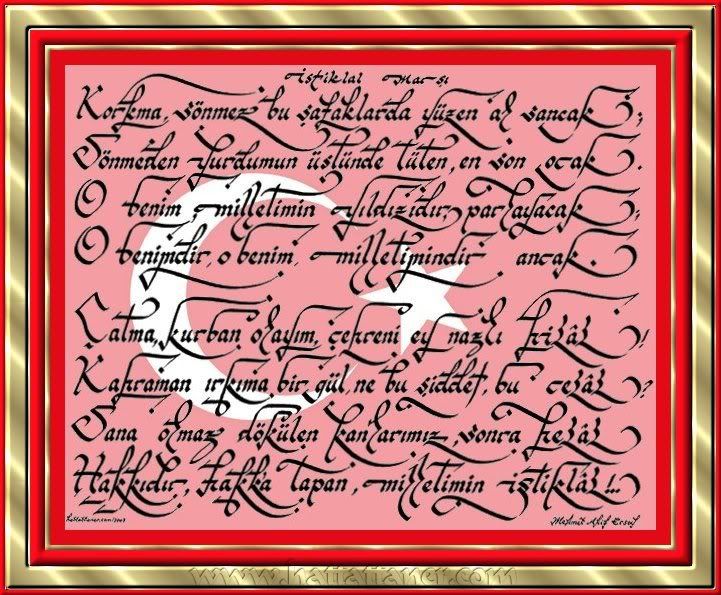 İstiklal Marşı
Korkma, sönmez bu şafaklarda yüzen al sancak;
Sönmeden yurdumun üstünde tüten, en son ocak.
O benim milletimin yıldızıdır, parlayacak;
O benimdir, o benim, milletimindir ancak.
Çatma, kurban olayım, çehreni ey nazlı hilâl!
Kahraman ırkıma bir gül, ne bu şiddet, bu celâl?
Sana olmaz dökülen kanlarımız, sonra helâl
Hakkıdır, Hakka tapan, milletimin istiklâl!...
hattattaner.com/2007
Mehmet Akif Ersoy
www.hattattaner.com